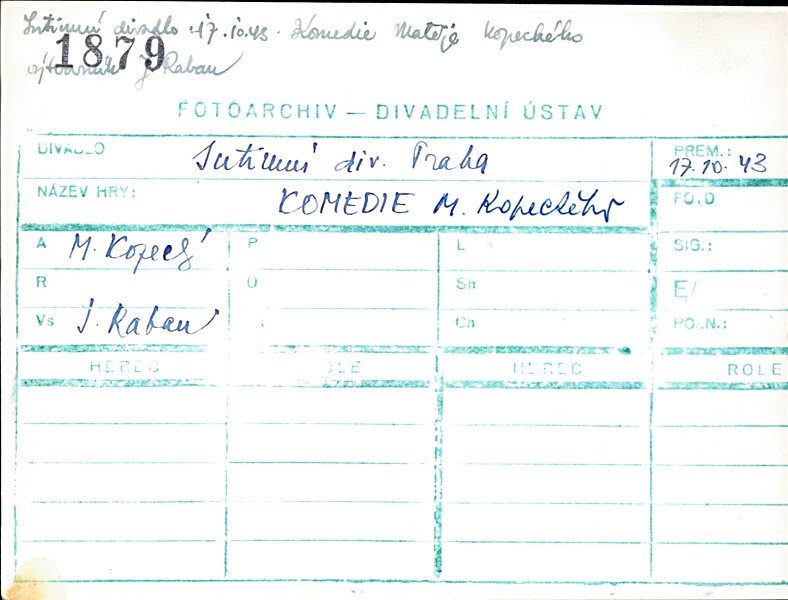 Intimní divadlo 17.10.43. Komedie Matěje Kopeckého
1879
výtvarník J Raban
FOTOARCHIV — DIVADELNÍ ÚSTAV
DIVADLO Intimní div. Praha PREM.: 17.10.43
NÁZEV HRY: KOMEDIE M. Kopeckého FOTO
A M. Kopecký P L SIG.:
R O Sh E/
Vs J. Raban Ch PO..N.:
HEREC ROLE HEREC ROLE